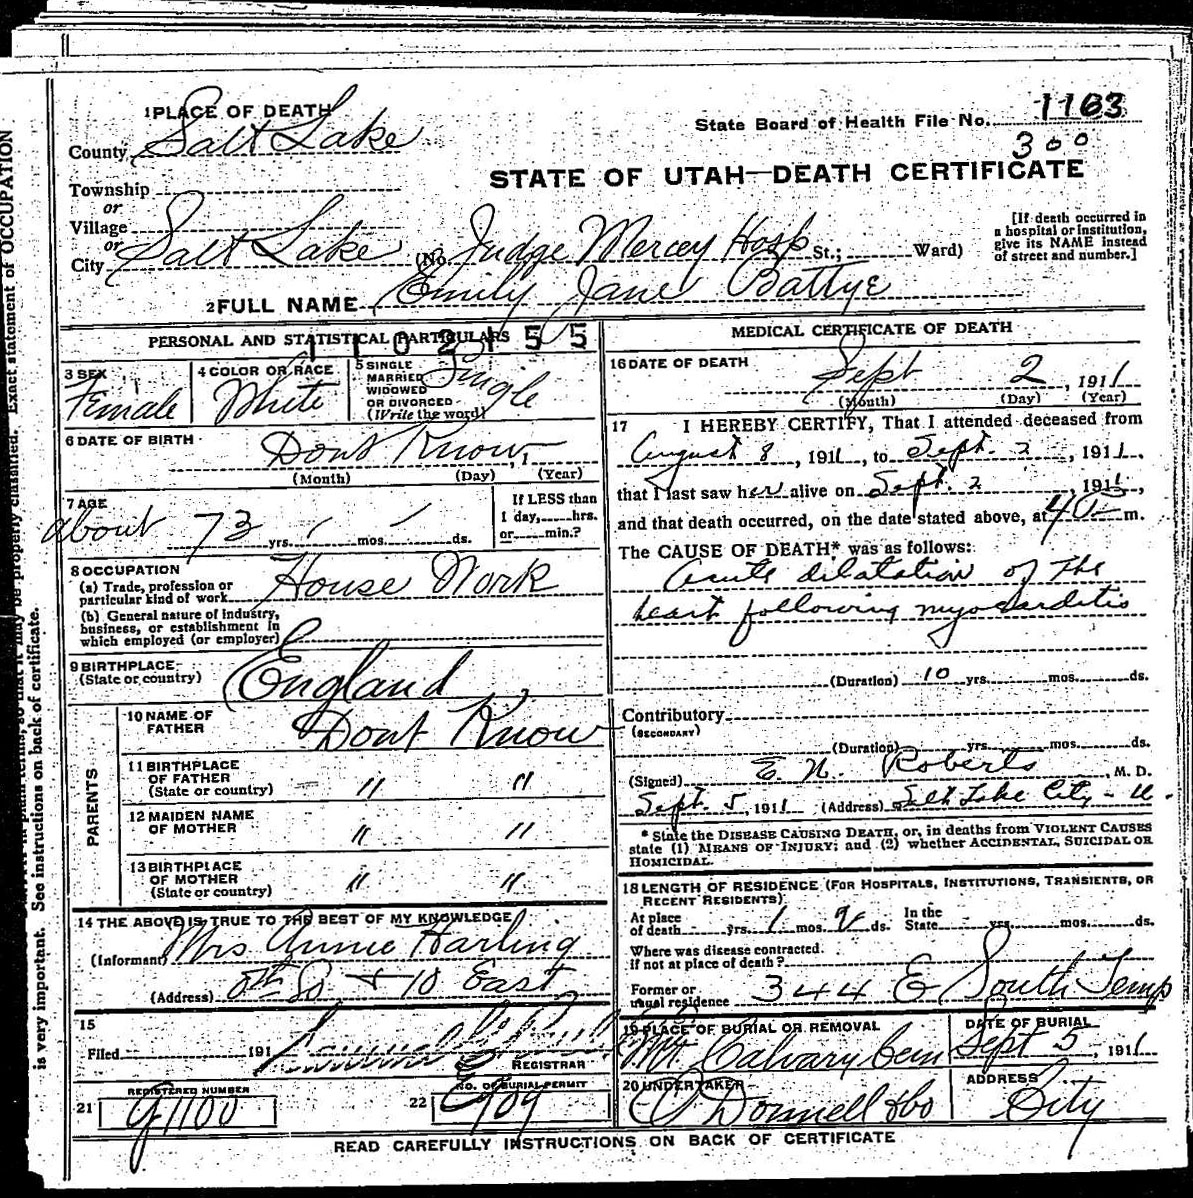 1 PLACE OF DEATH
County Salt Lake
State Board of Health File No. 1163
300
Township
or
Village
or
City Salt Lake (No. Judge Mercey Hosp St.; Ward)
STATE OF UTAH—DEATH CERTIFICATE
[If death occurred in
a hospital or institution,
give its NAME instead
of street and number.]
2 FULL NAME Emily Jane Battye
PERSONAL AND STATISTICAL PARTICULARS
1102155
3 SEX
Female
4 COLOR OR RACE
White
5 SINGLE
MARRIED
WIDOWED
OR DIVORCED
(Write the word)
Single
6 DATE OF BIRTH
Dont Know, 1
(Month) (Day) (Year)
7 AGE
about 73 yrs. mos. ds.
If LESS than
1 day, hrs.
or min.?
8 OCCUPATION
(a) Trade, profession or
particular kind of work House Work
(b) General nature of industry,
business, or establishment in
which employed (or employer)
9 BIRTHPLACE
(State or country) England
PARENTS
10 NAME OF
FATHER Dont Know
11 BIRTHPLACE
OF FATHER
(State or country) " "
12 MAIDEN NAME
OF MOTHER " "
13 BIRTHPLACE
OF MOTHER
(State or country) " "
14 THE ABOVE IS TRUE TO THE BEST OF MY KNOWLEDGE
(Informant) Mrs Annie Harling
(Address) 8th So + 10 East
15
Filed 191
REGISTRAR
REGISTERED NUMBER
21 G1100
NO. OF BURIAL PERMIT
22
MEDICAL CERTIFICATE OF DEATH
16 DATE OF DEATH
Sept 2, 1911
(Month) (Day) (Year)
17 I HEREBY CERTIFY, That I attended deceased from
August 8, 1911, to Sept. 2, 1911,
that I last saw her alive on Sept. 2, 1911,
and that death occurred, on the date stated above, at m.
The CAUSE OF DEATH* was as follows:
Acute dilatation of the
heart following myocarditis
(Duration) 10 yrs. mos. ds.
Contributory
(SECONDARY)
(Duration) yrs. mos. ds.
(Signed) E. N. Roberts, M. D.
Sept. 5, 1911 (Address) Salt Lake City - U.
* State the DISEASE CAUSING DEATH, or, in deaths from VIOLENT CAUSES
state (1) MEANS OF INJURY; and (2) whether ACCIDENTAL, SUICIDAL OR
HOMICIDAL.
18 LENGTH OF RESIDENCE (FOR HOSPITALS, INSTITUTIONS, TRANSIENTS, OR
RECENT RESIDENTS)
At place
of death yrs. 1 mos. 9 ds. In the
State yrs. mos. ds.
Where was disease contracted.
if not at place of death?
Former or
usual residence 344 E South Temp
19 PLACE OF BURIAL OR REMOVAL
Mt Calvary Cem
DATE OF BURIAL
Sept 5, 1911
20 UNDERTAKER
O'Donnell & Co
ADDRESS
City
READ CAREFULLY INSTRUCTIONS ON BACK OF CERTIFICATE
may be properly classified. Exact statement of OCCUPATION
is very important. See instructions on back of certificate.